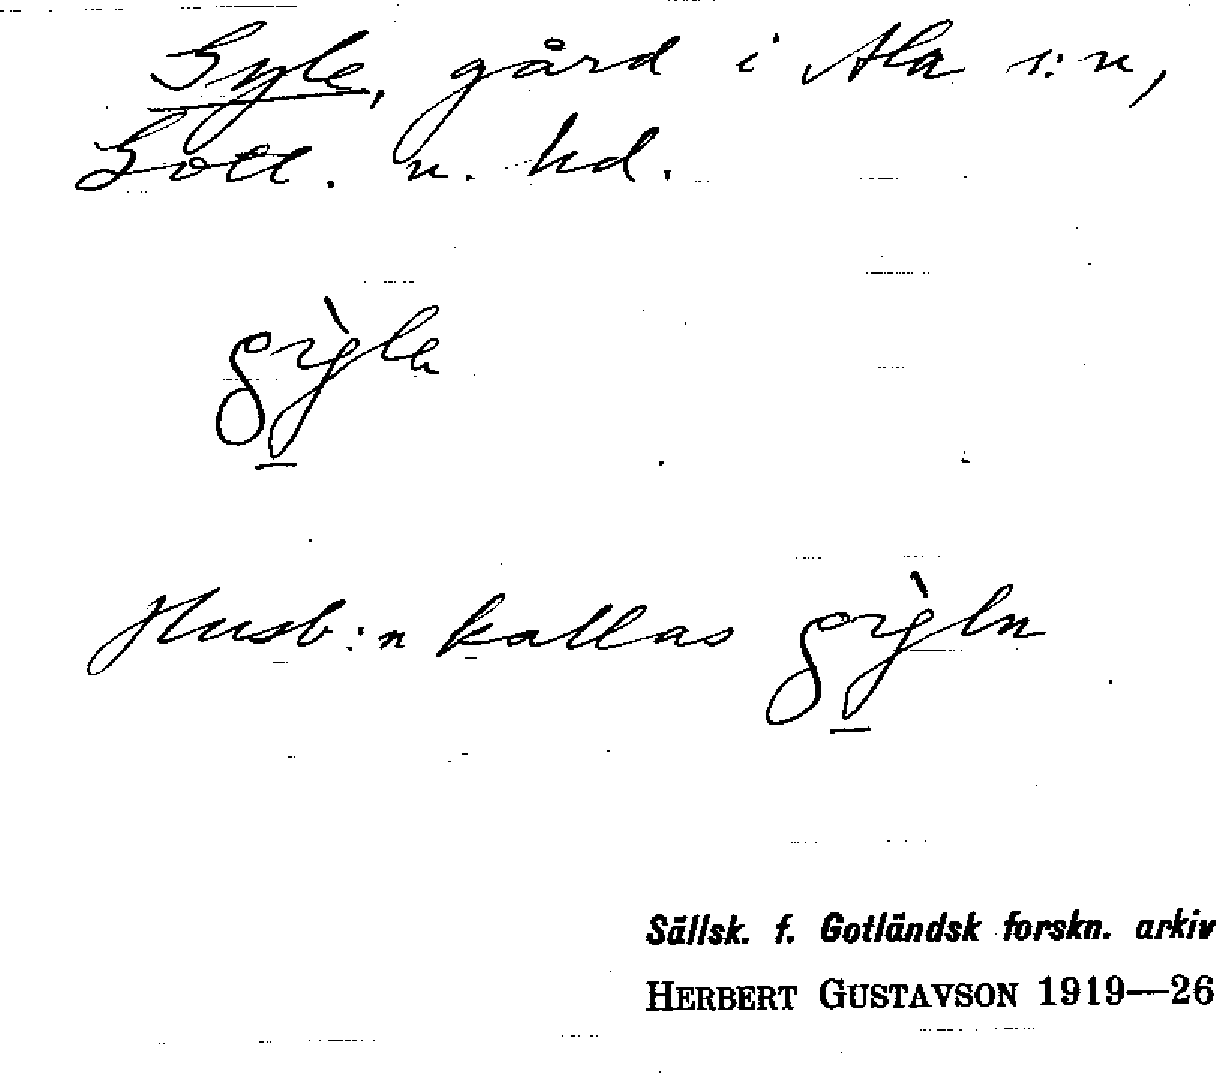 Gyle, gård i Ala s:n,
Gotl. n. hd.
Husb:n kallas
Sällsk. f. Gotländsk forskn. arkiv
HERBERT GUSTAVSON 1919—26